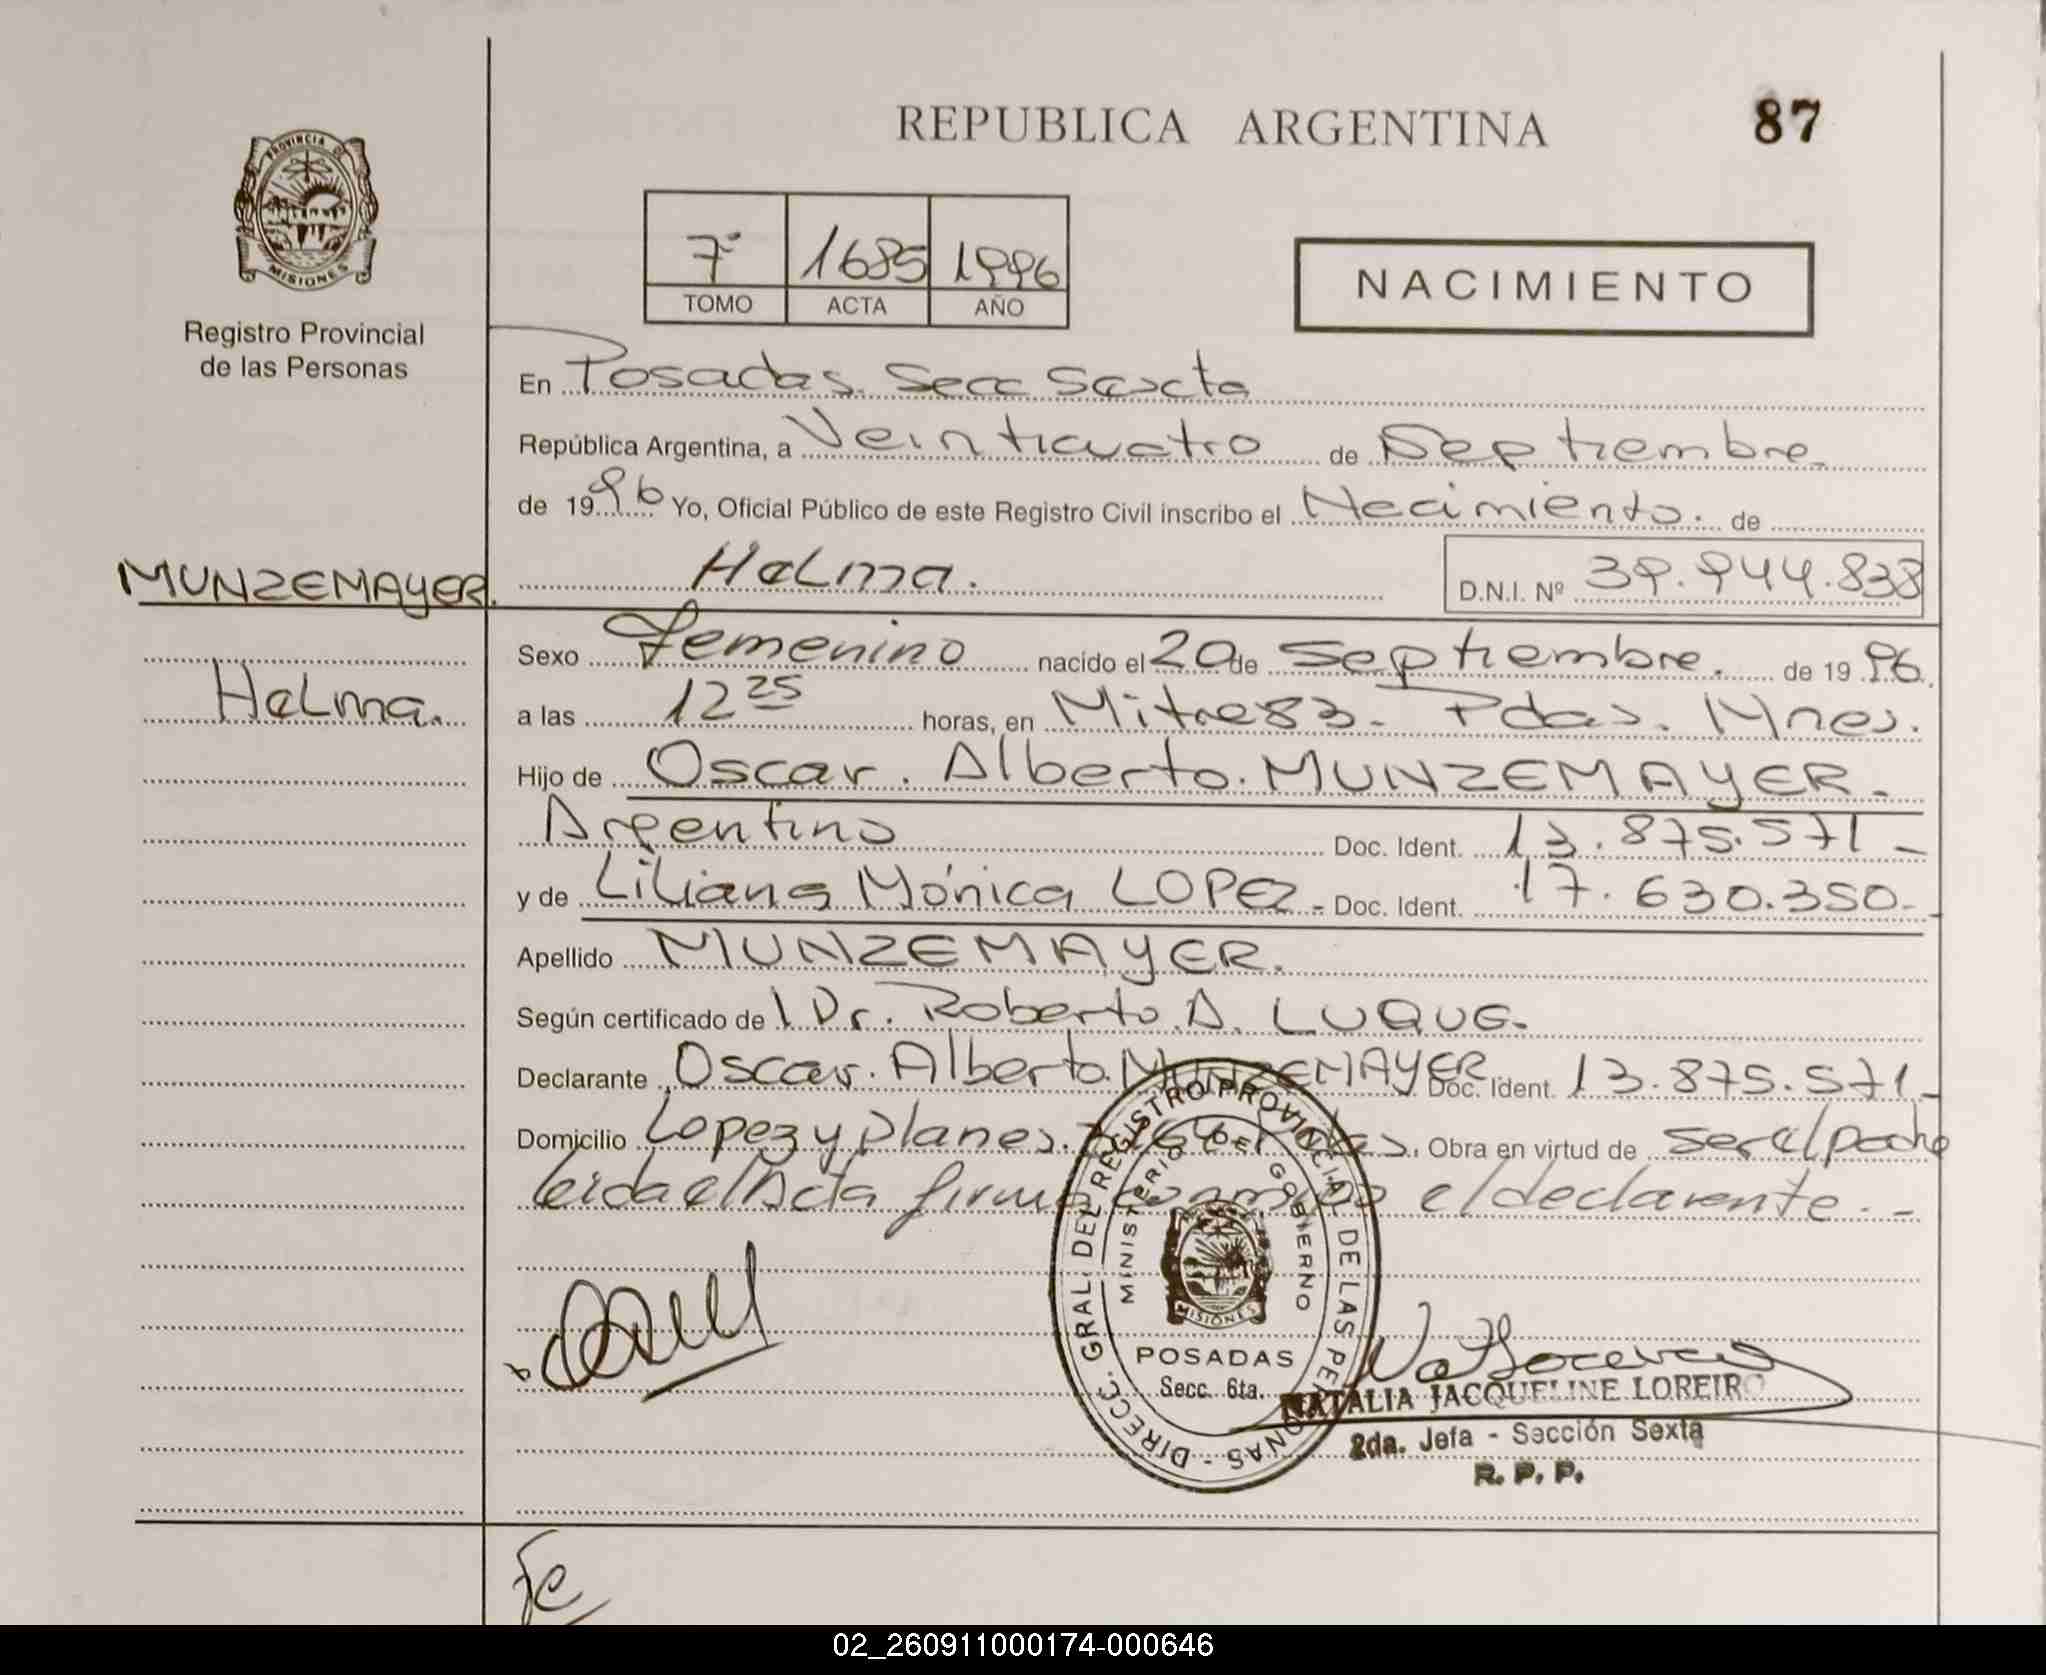 REPUBLICA ARGENTINA
87
PROVINCIA DE
MISIONES
Registro Provincial
de las Personas
7º 1685 1996
TOMO ACTA AÑO
NACIMIENTO
En Posadas. Secc Sexta
República Argentina, a Veinticuatro de Septiembre.
de 1996 Yo, Oficial Público de este Registro Civil inscribo el Nacimiento. de
MUNZEMAYER. Helma. D.N.I. Nº 39.944.838
Sexo Femenino nacido el 20 de Septiembre. de 1996.
Helma. a las 12 25 horas, en Mitre 83. Pdas. Mnes.
Hijo de Oscar. Alberto. MUNZEMAYER.
Argentino Doc. Ident. 13.875.571-
y de Liliana Mónica LOPEZ- Doc. Ident. 17.630.350-
Apellido MUNZEMAYER.
Según certificado de l Dr. Roberto. A. LUQUE.
Declarante Oscar. Alberto. MUNZEMAYER. Doc. Ident. 13.875.571-
Domicilio Lopez y planes. Pdas. Obra en virtud de ser el padre
leida el Acta firma conmigo el declarante.-
DIRECC. GRAL. DEL REGISTRO PROVINCIAL DE LAS PERSONAS -
MINISTERIO DE GOBIERNO
MISIONES
POSADAS
Secc. 6ta.
NATALIA JACQUELINE LOREIRO
2da. Jefa - Sección Sexta
R. P. P.
02_260911000174-000646